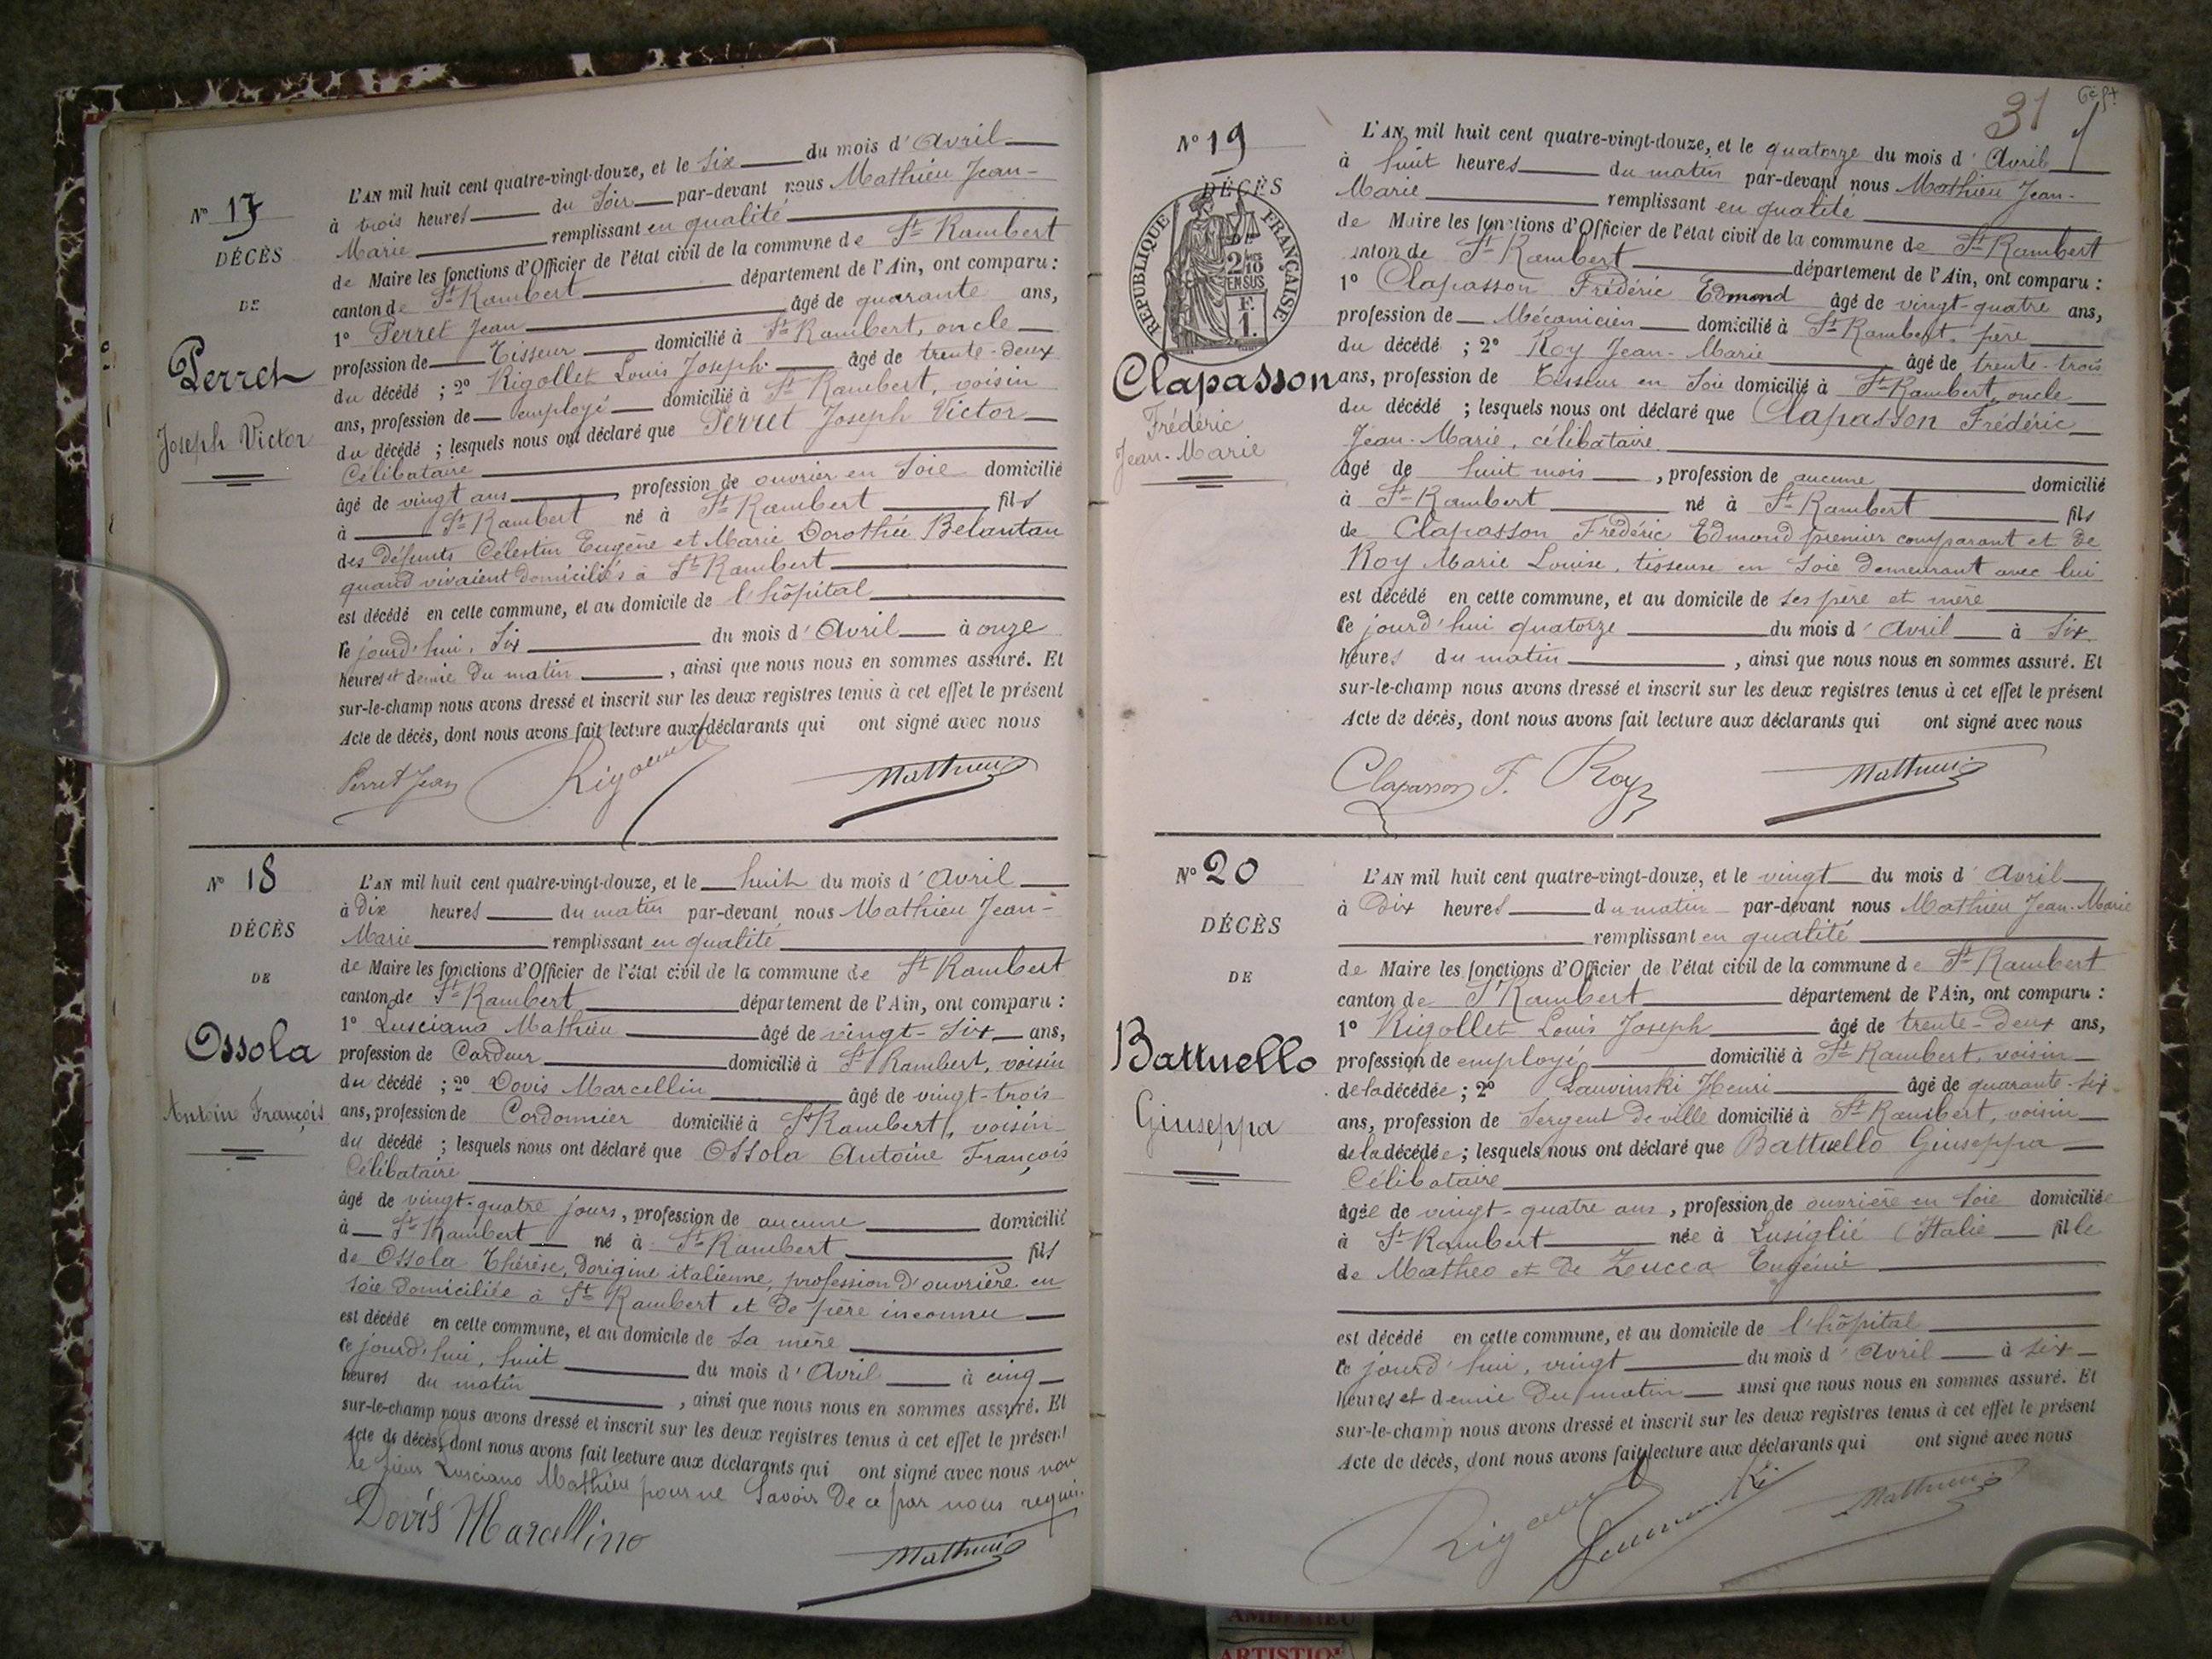 N° 17
DÉCÈS
DE
Perret
Joseph Victor
L'AN mil huit cent quatre-vingt-douze, et le six du mois d'Avril
à trois heures du soir par-devant nous Mathieu Jean-
Marie remplissant en qualité
de Maire les fonctions d'Officier de l'état civil de la commune de St Rambert
canton de St Rambert département de l'Ain, ont comparu :
1° Perret Jean âgé de quarante ans,
profession de Tisseur domicilié à St Rambert, oncle
du décédé ; 2° Rigollet Louis Joseph âgé de trente-deux
ans, profession de employé domicilié à St Rambert, voisin
du décédé ; lesquels nous ont déclaré que Perret Joseph Victor
Célibataire
âgé de vingt ans, profession de ouvrier en soie domicilié
à St Rambert né à St Rambert fils
des défunts Célestin Eugène et Marie Dorothée Belantan
quand vivaient domiciliés à St Rambert
est décédé en cette commune, et au domicile de l'hôpital
le jourd'hui, six du mois d'Avril à onze
heures et demie du matin, ainsi que nous nous en sommes assuré. Et
sur-le-champ nous avons dressé et inscrit sur les deux registres tenus à cet effet le présent
Acte de décès, dont nous avons fait lecture aux déclarants qui ont signé avec nous
Perret Jean Rigollet Mathieu
N° 18
DÉCÈS
DE
Ossola
Antoin François
L'AN mil huit cent quatre-vingt-douze, et le huit du mois d'Avril
à Dix heures du matin par-devant nous Mathieu Jean-
Marie remplissant en qualité
de Maire les fonctions d'Officier de l'état civil de la commune de St Rambert
canton de St Rambert département de l'Ain, ont comparu :
1° Lusciano Mathieu âgé de vingt-six ans,
profession de Cardeur domicilié à St Rambert, voisin
du décédé ; 2° Dovis Marcellin âgé de vingt-trois
ans, profession de Cordonnier domicilié à St Rambert, voisin
du décédé ; lesquels nous ont déclaré que Ossola Antoine François
Célibataire
âgé de vingt-quatre jours, profession de aucune domicilié
à St Rambert né à St Rambert fils
de Ossola Thérèse, dorigine italienne, profession D'ouvrière en
soie Domiciliée à St Rambert et de père inconnu
est décédé en cette commune, et au domicile de sa mère
le jourd'hui, huit du mois d'Avril à cinq
heures du matin, ainsi que nous nous en sommes assuré. Et
sur-le-champ nous avons dressé et inscrit sur les deux registres tenus à cet effet le présent
Acte de décès, dont nous avons fait lecture aux déclarants qui ont signé avec nous non
le sieur Lusciano Mathieu pour ne savoir De ce par nous requis.
Dovis Marcellino Mathieu
31
N° 19
DÉCÈS
RÉPUBLIQUE FRANÇAISE
2/10 EN SUS
F. 1.
Clapasson
Frédéric
Jean-Marie
L'AN mil huit cent quatre-vingt-douze, et le quatorze du mois d'Avril
à huit heures du matin par-devant nous Mathieu Jean-
Marie remplissant en qualité
de Maire les fonctions d'Officier de l'état civil de la commune de St Rambert
anton de St Rambert département de l'Ain, ont comparu :
1° Clapasson Frédéric Edmond âgé de vingt-quatre ans,
profession de Mécanicien domicilié à St Rambert, père
du décédé ; 2° Roy Jean-Marie âgé de trente-trois
ans, profession de Tisseur en Soie domicilié à St Rambert, oncle
du décédé ; lesquels nous ont déclaré que Clapasson Frédéric
Jean-Marie, célibataire
âgé de huit mois, profession de aucune domicilié
à St Rambert né à St Rambert fils
de Clapasson Frédéric Edmond premier comparant et de
Roy Marie Louise, tisseuse en Soie demeurant avec lui
est décédé en cette commune, et au domicile de ses père et mère
le jourd'hui quatorze du mois d'Avril à six
heures du matin, ainsi que nous nous en sommes assuré. Et
sur-le-champ nous avons dressé et inscrit sur les deux registres tenus à cet effet le présent
Acte de décès, dont nous avons fait lecture aux déclarants qui ont signé avec nous
Clapasson F. Roy Mathieu
N° 20
DÉCÈS
DE
Battuello
Giuseppa
L'AN mil huit cent quatre-vingt-douze, et le vingt du mois d'Avril
à Dix heures du matin par-devant nous Mathieu Jean-Marie
remplissant en qualité
de Maire les fonctions d'Officier de l'état civil de la commune de St Rambert
canton de St Rambert département de l'Ain, ont comparu :
1° Rigollet Louis Joseph âgé de trente-Deux ans,
profession de employé domicilié à St Rambert, voisin
de la décédée ; 2° Lauvinski Henri âgé de quarante-six
ans, profession de Sergent De ville domicilié à St Rambert, voisin
de la décédée ; lesquels nous ont déclaré que Battuello Giuseppa
Célibataire
âgée de vingt-quatre ans, profession de ouvrière en soie domiciliée
à St Rambert née à Lusiglié (Italie fille
de Matheo et De Zeucca Eugénie
est décédé en cette commune, et au domicile de l'hôpital
le jourd'hui, vingt du mois d'Avril à six
heures et demie Du matin ainsi que nous nous en sommes assuré. Et
sur-le-champ nous avons dressé et inscrit sur les deux registres tenus à cet effet le présent
Acte de décès, dont nous avons fait lecture aux déclarants qui ont signé avec nous
Rigollet Mathieu
AMBERIEU
ARTISTIQ